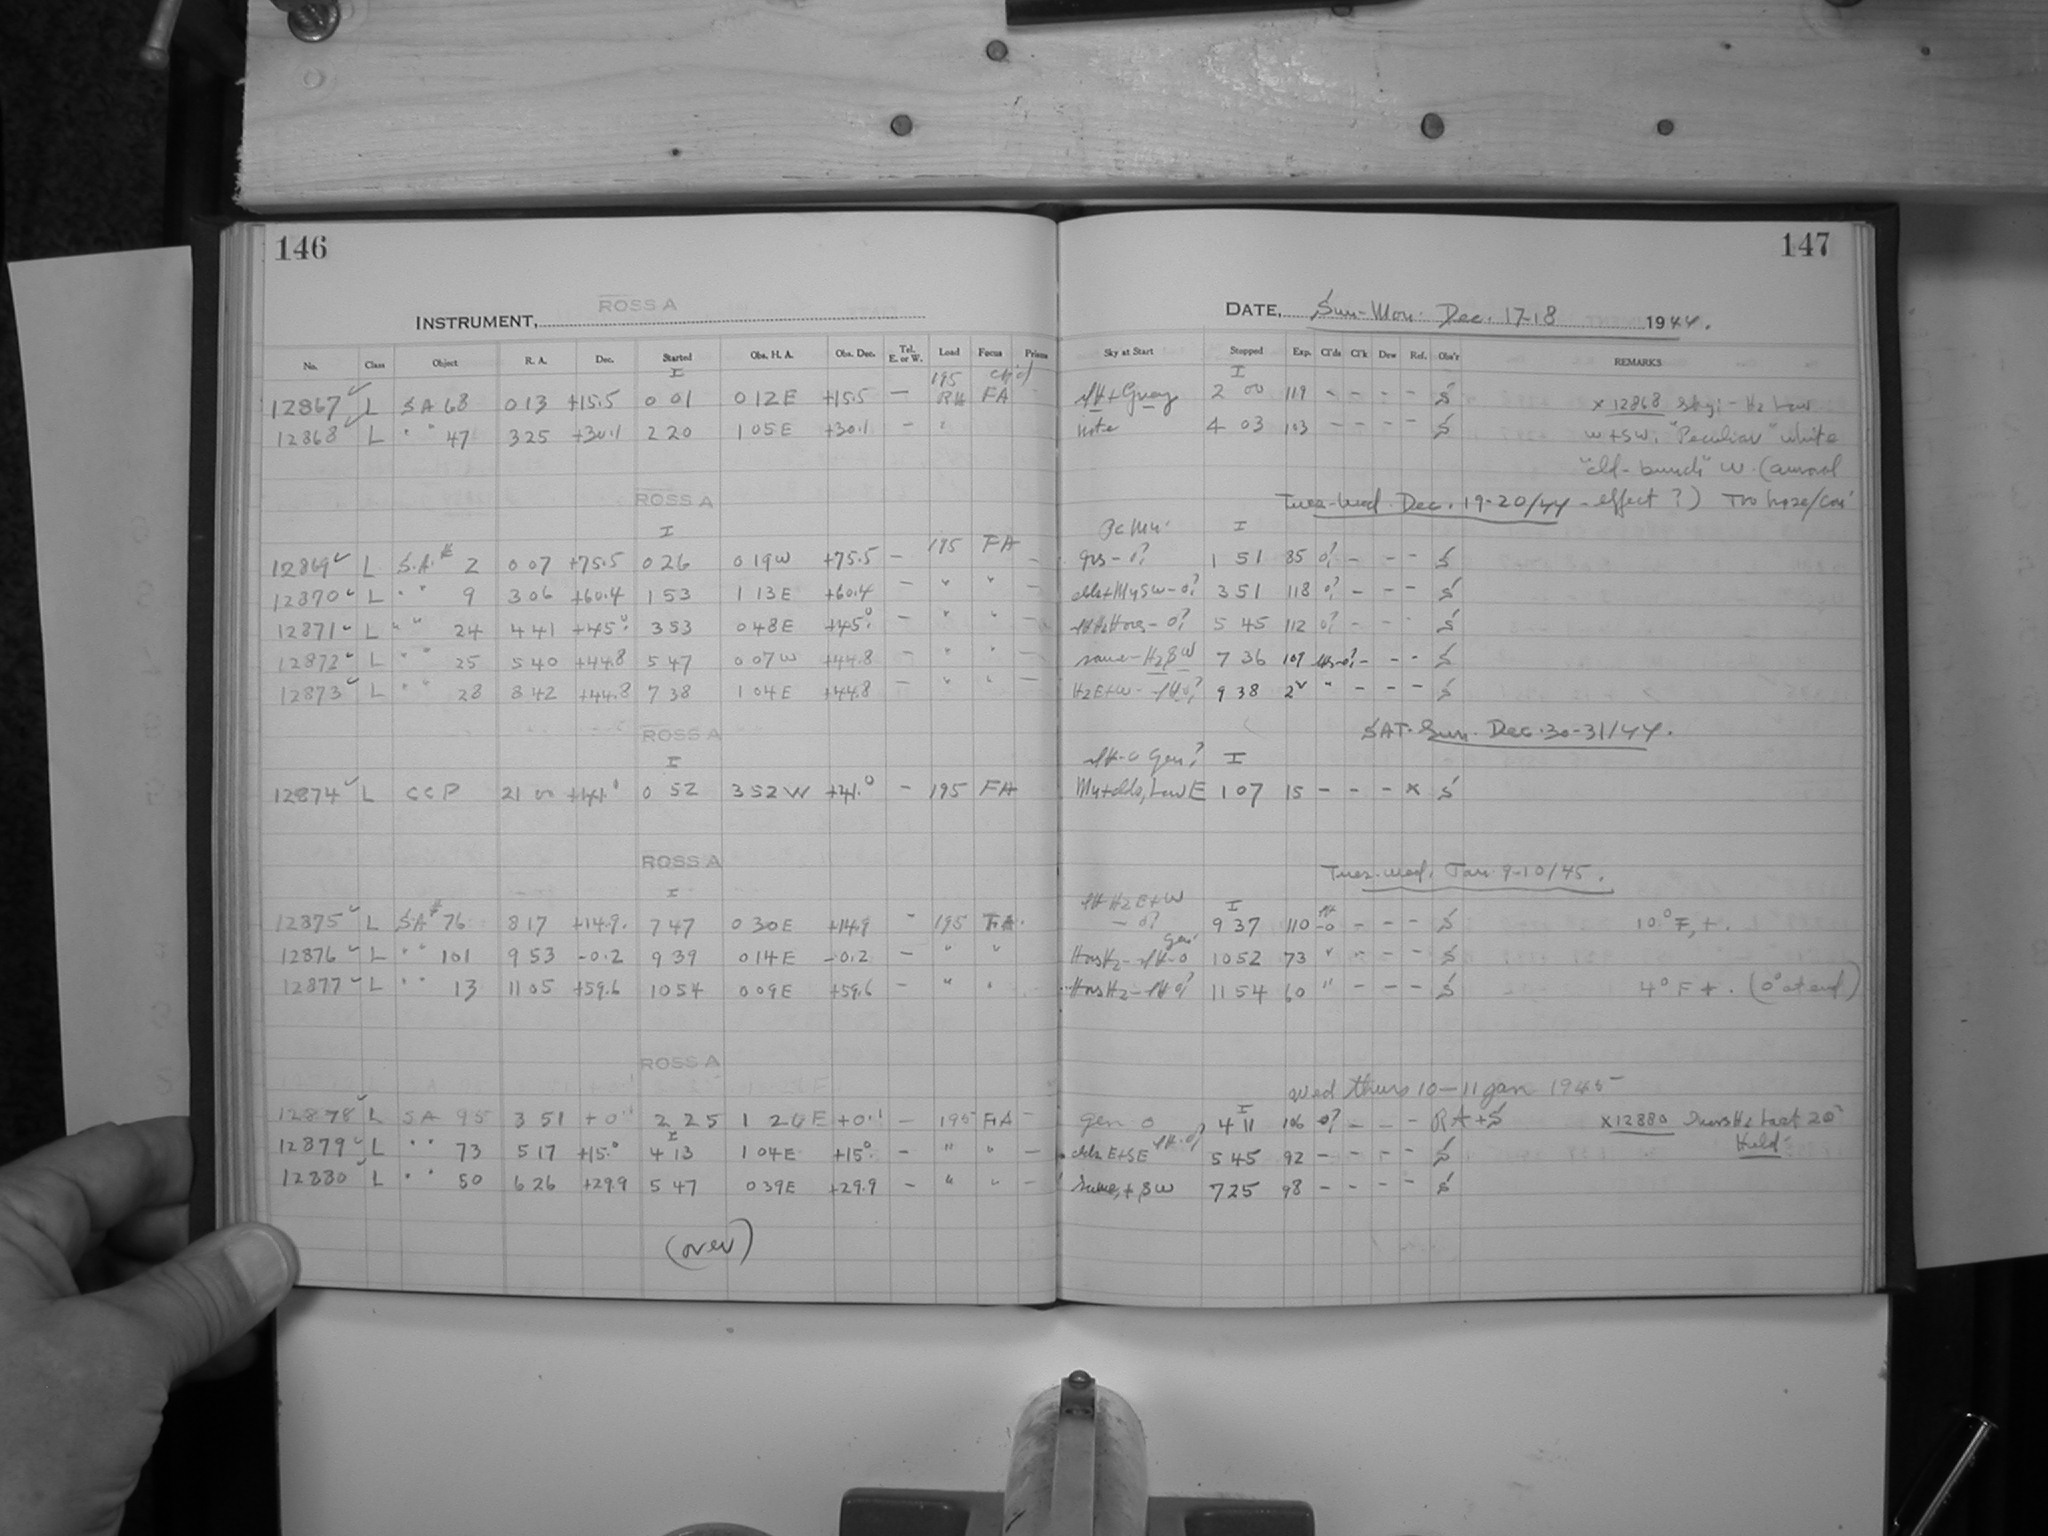 146
147
INSTRUMENT, ROSS A
DATE, Sun-Mon. Dec. 17-18 1944.
No. Class Object R. A. Dec. Started Obs. H. A. Obs. Dec. Tel. E. or W. Load Focus Prisms Sky at Start Stopped Exp. Cl'ds Cl'k Dew Ref. Obs'r REMARKS
I 195 I
12867 L SA 68 0 13 +15.5 0 01 0 12 E +15.5 — RH FA 2 00 119 - - - - S x 12868 - Hz Low
12868 L " " 47 3 25 +30.1 2 20 1 05 E +30.1 — " note 4 03 103 - - - - S W + SW. "Peculiar" white
"cld-bunch" W. (auroral
ROSS A Tues-Wed. Dec. 19-20/44 - effect?) Too
I I
12869 L S.A.# 2 0 07 +75.5 0 26 0 19 W +75.5 — 195 FA — 0? 1 51 85 0? - - - S
12870 L " " 9 3 06 +60.4 1 53 1 13 E +60.4 — " " 3 51 118 0? - - - S
12871 L " " 24 4 41 +45.0 3 53 0 48 E +45.0 — " " — 5 45 112 0? - - - S
12872 L " " 25 5 40 +44.8 5 47 0 07 W +44.8 — " " — same - Hz SW 7 36 109 - - - S
12873 L " " 28 8 42 +44.8 7 38 1 04 E +44.8 — " " — Hz E+W 9 38 " - - - - S
ROSS A SAT-Sun. Dec. 30-31/44.
I I
12874 L CCP 21 00 +41.0 0 52 3 52 W +41.0 — 195 FA Low E 1 07 15 - - - x S
ROSS A Tues-Wed. Jan. 9-10/45.
I Hz E+W I
12875 L SA# 76 8 17 +14.9 7 47 0 30 E +14.9 - 195 FA. — 0? 9 37 110 -0 - - - S 10° F, +.
12876 L " " 101 9 53 -0.2 9 39 0 14 E -0.2 — " " 10 52 73 " - - - S
12877 L " " 13 11 05 +59.6 10 54 0 09 E +59.6 — " " 11 54 60 " - - - S 4° F +. (0° at end)
ROSS A
Wed Thurs 10-11 Jan 1945
I
12878 L SA 95 3 51 +0.1 2 25 1 26 E +0.1 — 195 FA — gen 0 4 11 106 0? - - - RA+S x 12880 Last 20
I
12879 L " " 73 5 17 +15.0 4 13 1 04 E +15.0 — " " — clds E+SE 5 45 92 - - - - S
12880 L " " 50 6 26 +29.9 5 47 0 39 E +29.9 — " " — Same, + SW 7 25 98 - - - - S
(over)